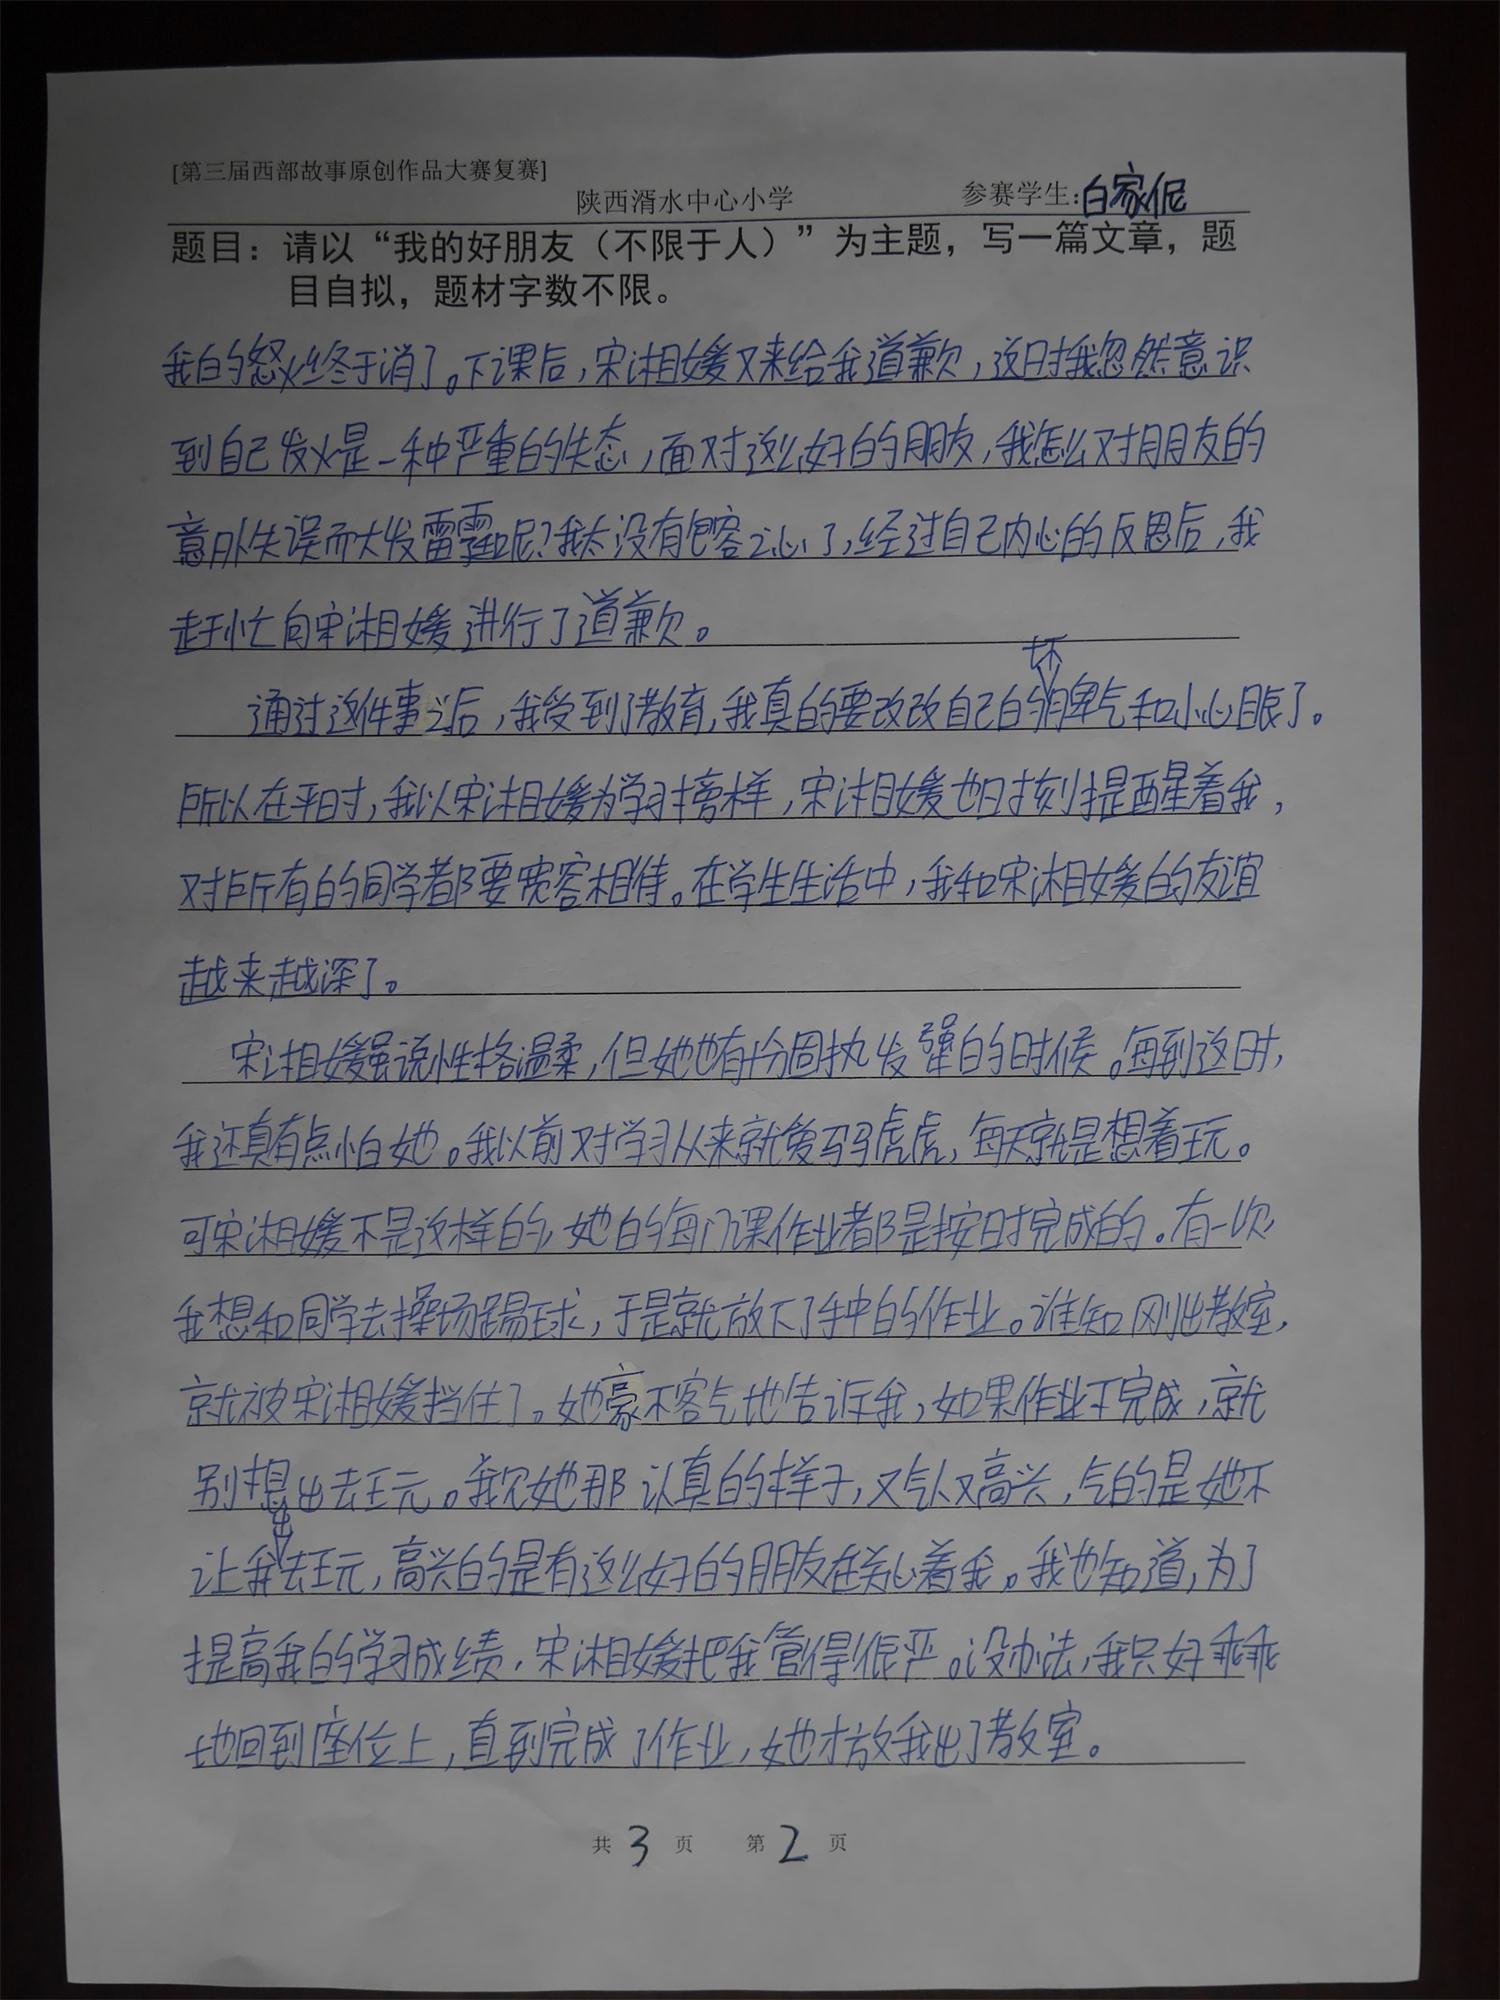 [第三届西部故事原创作品大赛复赛]
陕西湑水中心小学 参赛学生:白家伲
题目：请以“我的好朋友（不限于人）”为主题，写一篇文章，题
目自拟，题材字数不限。
我的怒火终于消了。下课后，宋湘媛又来给我道歉，这时我忽然意识
到自己发火是一种严重的失态，面对这么好的朋友，我怎么对朋友的
意外失误而大发雷霆呢？我太没有包容之心了，经过自己内心的反思后，我
赶忙向宋湘媛进行了道歉。
通过这件事之后，我受到了教育，我真的要改改自己的坏脾气和小心眼了。
所以在平时，我以宋湘媛为学习榜样，宋湘媛也时刻提醒着我，
对所有的同学都要宽容相待。在学生生活中，我和宋湘媛的友谊
越来越深了。
宋湘媛虽说性格温柔，但她也有份固执发犟的时候。每到这时，
我还真有点怕她。我以前对学习从来就爱马马虎虎，每天就是想着玩。
可宋湘媛不是这样的，她的每门课作业都是按时完成的。有一次，
我想和同学去操场踢球，于是就放下了手中的作业。谁知刚出教室，
就被宋湘媛挡住了。她豪不客气地告诉我，如果作业不完成，就
别想出去玩。我见她那认真的样子，又气人又高兴，气的是她不
让我出去玩，高兴的是有这么好的朋友在关心着我。我也知道，为了
提高我的学习成绩，宋湘媛把我管得很严。没办法，我只好乖乖
地回到座位上，直到完成了作业，她才放我出了教室。
共 3 页 第 2 页